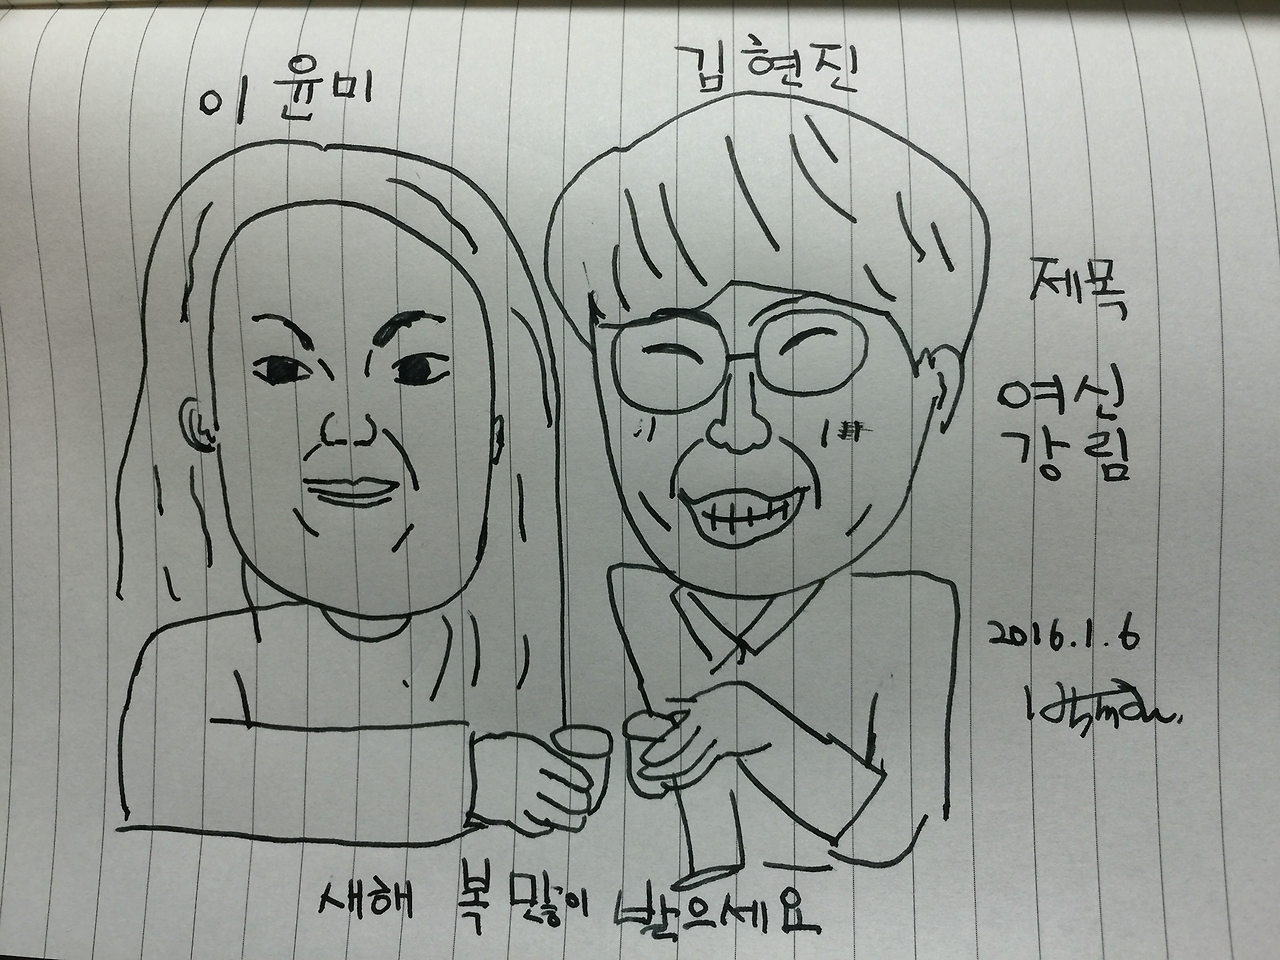 이윤미
김현진
제목
여신
강림
2016.1.6
새해 복 많이 받으세요